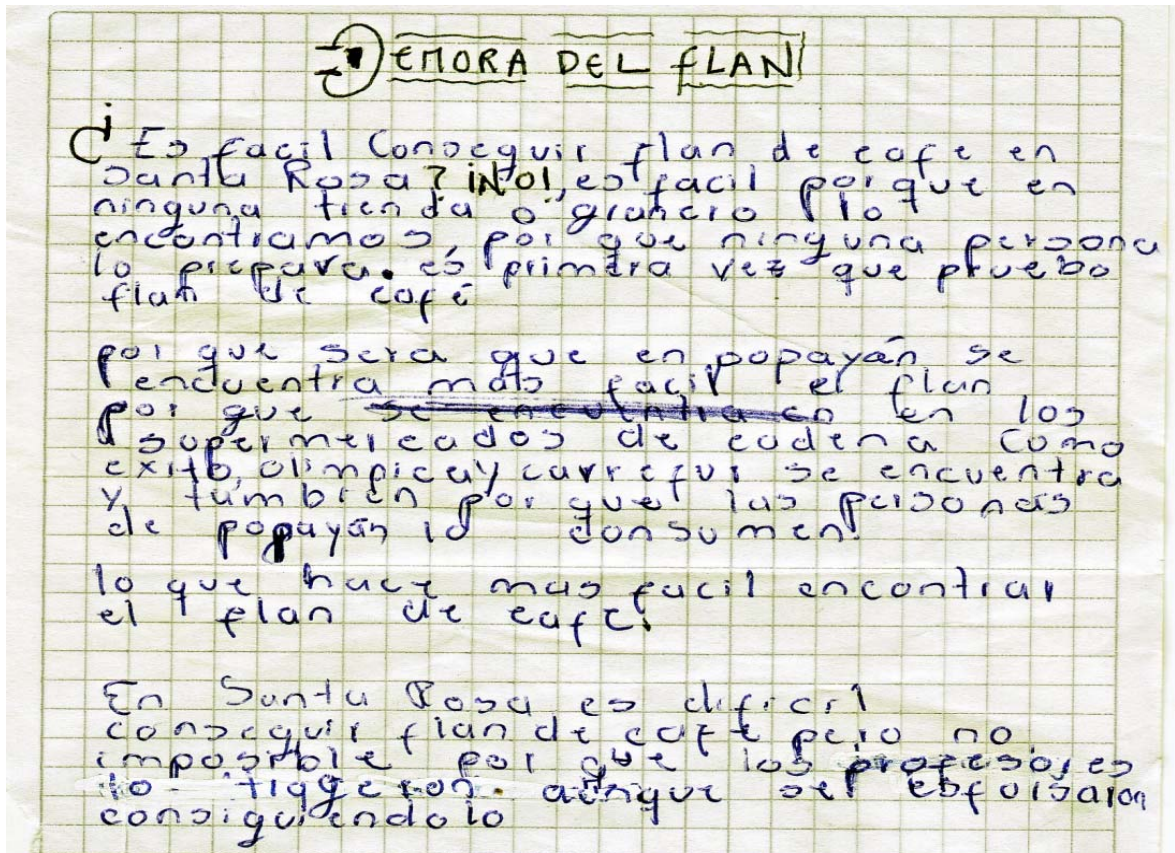 DEMORA DEL FLAN
¿Es facil Conseguir flan de cafe en
Santa Rosa? ¡NO!, es facil porque en
ninguna tienda o granero lo
encontramos, por que ninguna persona
lo prepara. es primera vez que pruebo
flan de café
por que sera que en popayán se
encuentra mas facil el flan
por que se encuentra en en los
supermercados de cadena como
exito, olimpica y carrefur se encuentra
y tambien por que las personas
de popayán lo consumen.
lo que hace mas facil encontrar
el flan de cafe.
En Santa Rosa es dificil
conseguir flan de cafe pero no
imposible por que los profesores
lo trageron. aunque se esforsaron
consiguiendolo